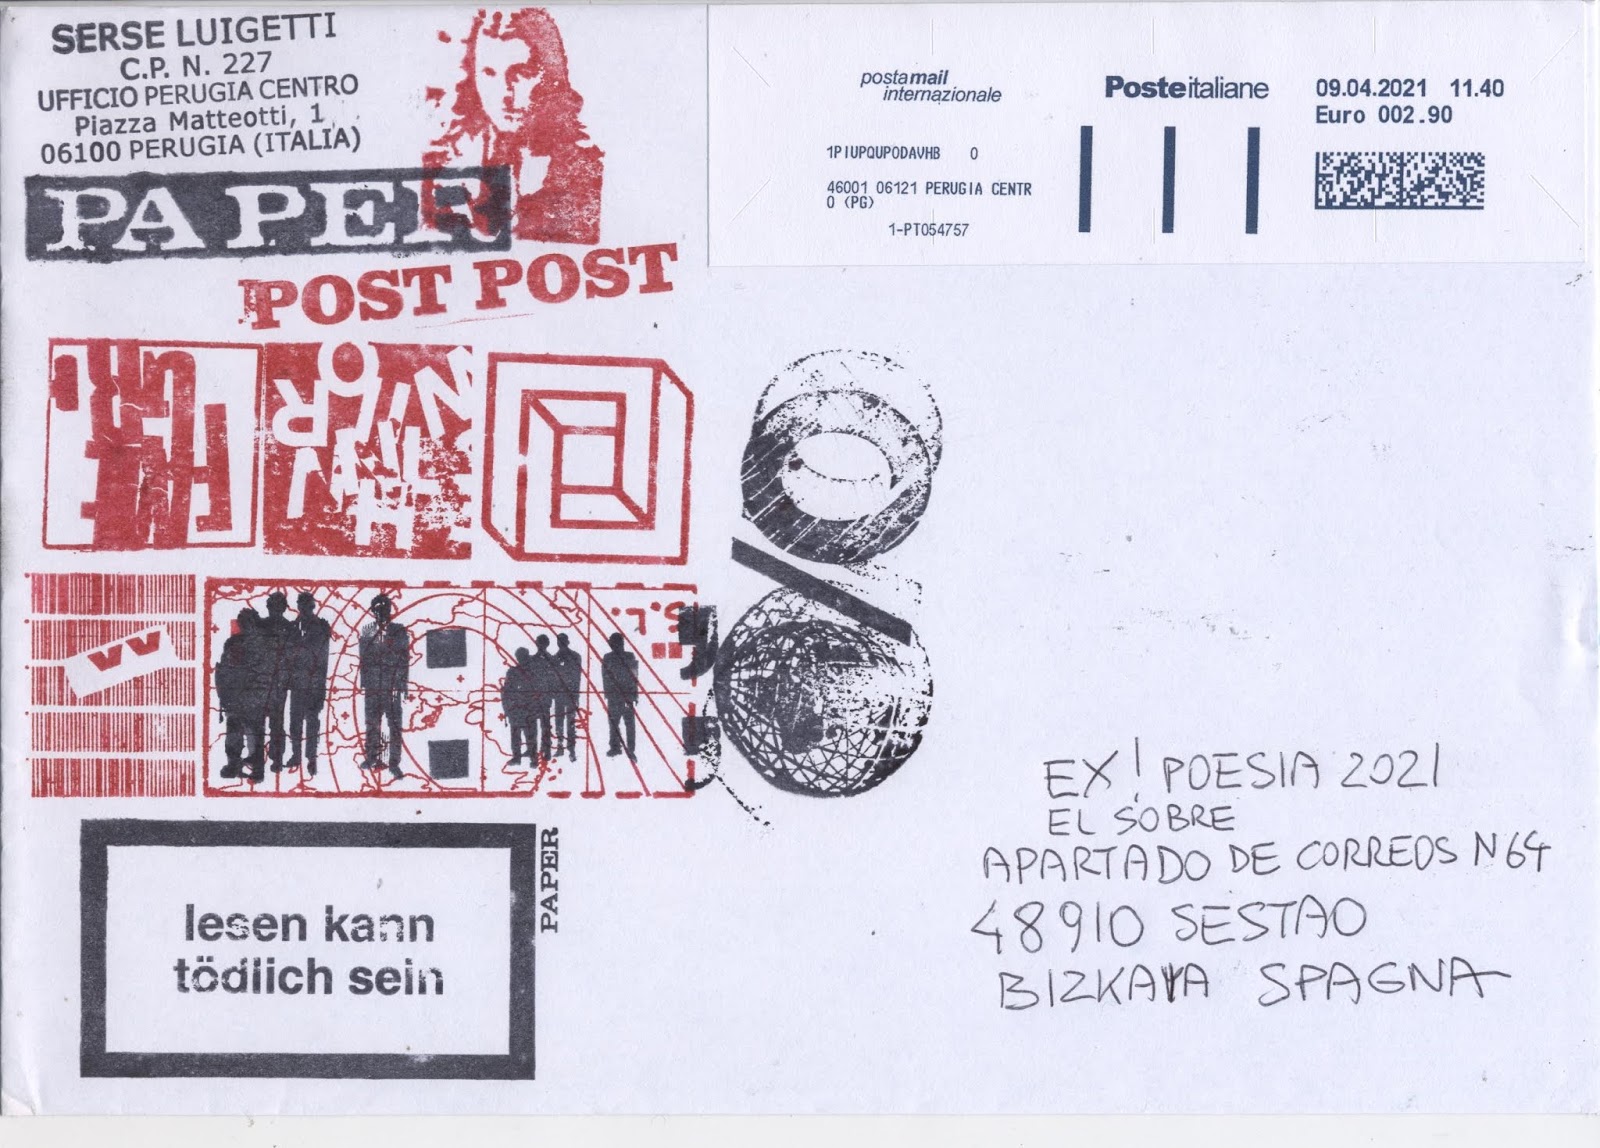 SERSE LUIGETTI
C.P. N. 227
UFFICIO PERUGIA CENTRO
Piazza Matteotti, 1
06100 PERUGIA (ITALIA)
PAPER
POST POST
postamail
internazionale
Posteitaliane
09.04.2021 11.40
Euro 002.90
1PIUPQUPODAVHB 0
46001 06121 PERUGIA CENTR
O (PG)
1-PT054757
VV
S.L.
lesen kann
tödlich sein
PAPER
EX! POESIA 2021
EL SOBRE
APARTADO DE CORREOS N64
48910 SESTAO
BIZKAIA SPAGNA